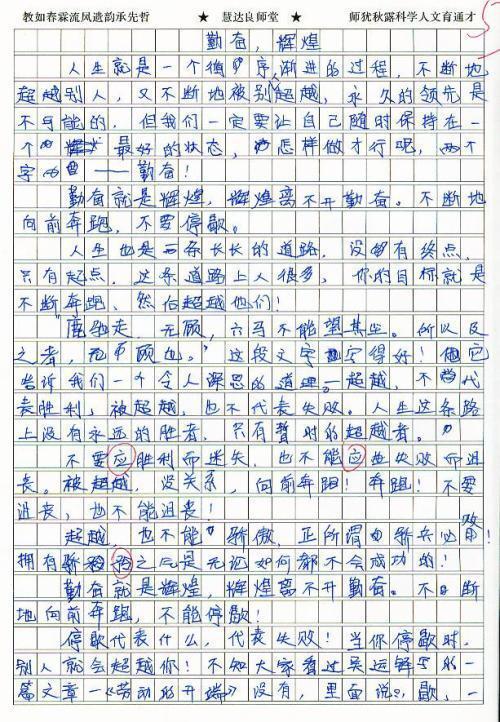 教如春霖流风遗韵承先哲 ★ 慧达良师堂 ★ 师犹秋露科学人文育通才
勤奋，辉煌
人生就是一个循序渐进的过程，不断地
超越别人，又不断地被别超越，永久的领先是
不可能的，但我们一定要让自己随时保持在一
个最好的状态，怎样做才行呢，两个
字——勤奋！
勤奋就是辉煌，辉煌离不开勤奋。不断地
向前奔跑，不要停歇。
人生也是一条长长的道路，没有终点，
只有起点，这条道路上人很多，你的目标就是
不断奔跑、然后超越他们！
“鹿驰走，无顾，六马不能望其尘。所以及
之者，顾也。”这段文字写得好！它
告诉我们一个令人深思的道理。超越，不代
表胜利，被超越，也不代表失败。人生这条路
上没有永远的胜者，只有暂时的超越者。”
不要应胜利而迷失，也不能应失败而沮
丧。被超越，没关系，向前奔跑！奔跑！不要
沮丧，也不能沮丧！
超越，也不能骄傲，正所谓骄兵必败！
拥有骄之兵是无论如何都不会成功的！
勤奋就是辉煌，辉煌离不开勤奋。不断
地向前奔跑，不能停歇！
停歇代表什么，代表失败！当你停歇时，
别人就会超越你！不知大家看过吴运铎写的一
篇文章—《劳动的开端》没有，里面说，歇，一